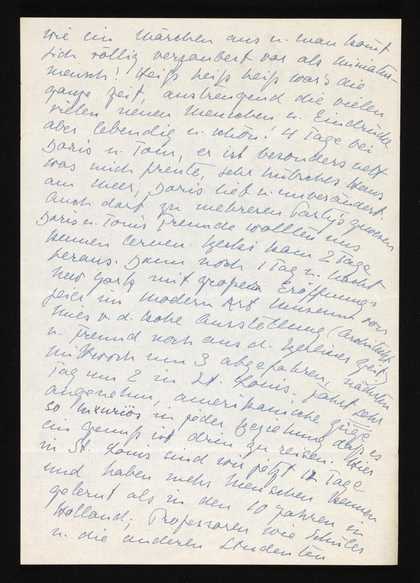 wie ein Märchen aus u. man kommt
sich völlig verzaubert vor als Miniatur-
mensch! Heiß heiß heiß war's die
ganze Zeit, anstrengend die vielen
vielen neuen Menschen u. Eindrücke
aber lebendig u. schön! 4 Tage bei
Doris u. Tom, er ist besonders nett
was mich freute, sehr hübsches Haus
am Meer, Doris lieb u. unverändert.
Auch dort zu mehreren Partys
Doris u. Toms Freunde wollten uns
kennen lernen. kam 2 Tage
heraus. Dann noch 1 Tag u. Nacht
New York mit großem Eröffnungs-
feier im Modern Art Museum von
Mies v. d. Rohe Ausstellung (Architekt
u. Freund noch aus d. Berliner Zeit)
Mittwoch um 3 abgefahren, nächsten
Tag um 2 in St. Louis. Fahrt sehr
angenehm, amerikanische Züge
so luxuriös in jeder Beziehung daß es
ein Genuß ist drin zu reisen. Hier
in St. Louis sind wir jetzt 12 Tage
und haben mehr Menschen kennen
gelernt als in den 10 Jahren in
Holland; Professoren wie Schüler
u. die anderen Studenten